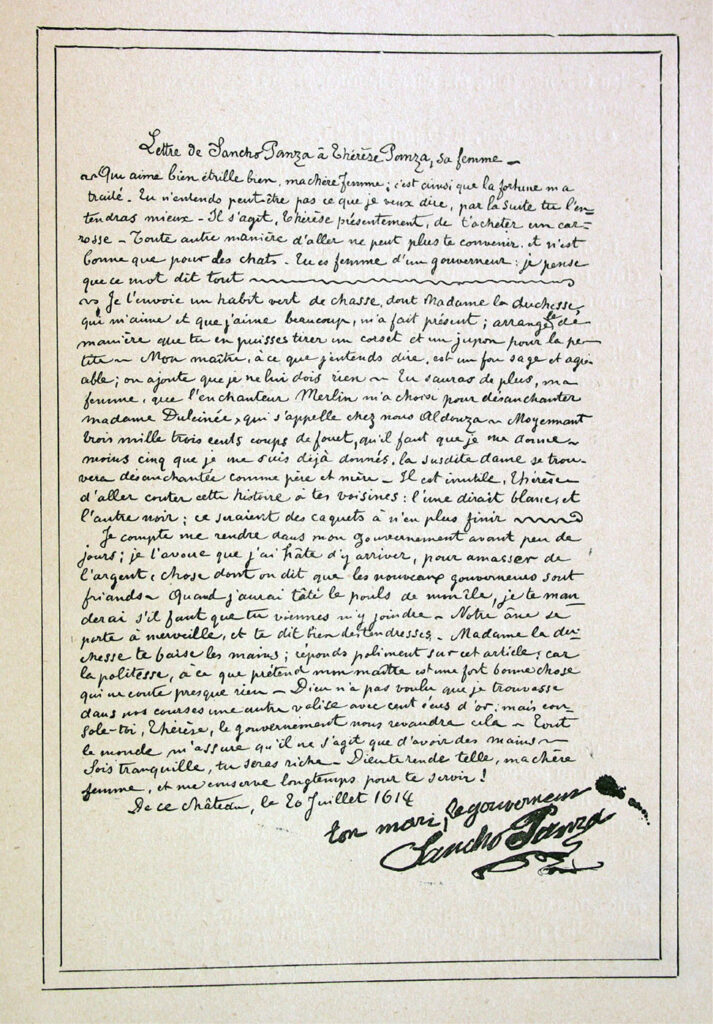 Lettre de Sancho Panza à Thérèse Panza, sa femme —
~ Qui aime bien étrille bien, ma chère femme; c'est ainsi que la fortune m'a
traité. Tu n'entends peut-être pas ce que je veux dire, par la suite tu l'en-
tendras mieux — Il s'agit, Thérèse présentement, de t'acheter un car-
rosse — Toute autre manière d'aller ne peut plus te convenir, et n'est
bonne que pour des chats. Tu es femme d'un gouverneur: je pense
que ce mot dit tout
~ Je t'envoie un habit vert de chasse, dont Madame la duchesse,
qui m'aime et que j'aime beaucoup, m'a fait présent; arrange le de
manière que tu en puisses tirer un corset et un jupon pour la pe-
tite — Mon maître, à ce que j'entends dire, est un fou sage et agré-
able; on ajoute que je ne lui dois rien — Tu sauras de plus, ma
femme, que l'enchanteur Merlin m'a choisi pour désenchanter
madame Dulcinée, qui s'appelle chez nous Aldouza — Moyennant
trois mille trois cents coups de fouet, qu'il faut que je me donne —
moins cinq que je me suis déjà donnés, la susdite dame se trou-
vera désenchantée comme père et mère — Il est inutile, Thérèse —
d'aller conter cette histoire à tes voisines: l'une dirait blanc, et
l'autre noir; ce seraient des caquets à n'en plus finir
Je compte me rendre dans mon gouvernement avant peu de
jours; je t'avoue que j'ai hâte d'y arriver, pour amasser de
l'argent, chose dont on dit que les nouveaux gouverneurs sont
friands — Quand j'aurai tâté le pouls de mon île, je te man
derai s'il faut que tu viennes m'y joindre — Notre âne se
porte à merveille, et te dit bien des tendresses. Madame la du-
chesse te baise les mains; réponds poliment sur cet article; car
la politesse, à ce que prétend mon maître est une fort bonne chose
qui ne coute presque rien — Dieu n'a pas voulu que je trouvasse
dans nos courses une autre valise avec cent écus d'or; mais con
sole-toi, Thérèse, le gouvernement nous revaudra cela — Tout
le monde m'assure qu'il ne s'agit que d'avoir des mains —
Sois tranquille, tu seras riche — Dieu te rende telle, ma chère
femme, et me conserve longtemps pour te servir!
De ce château, le 20 Juillet 1614
ton mari, le gouverneur
Sancho Panza